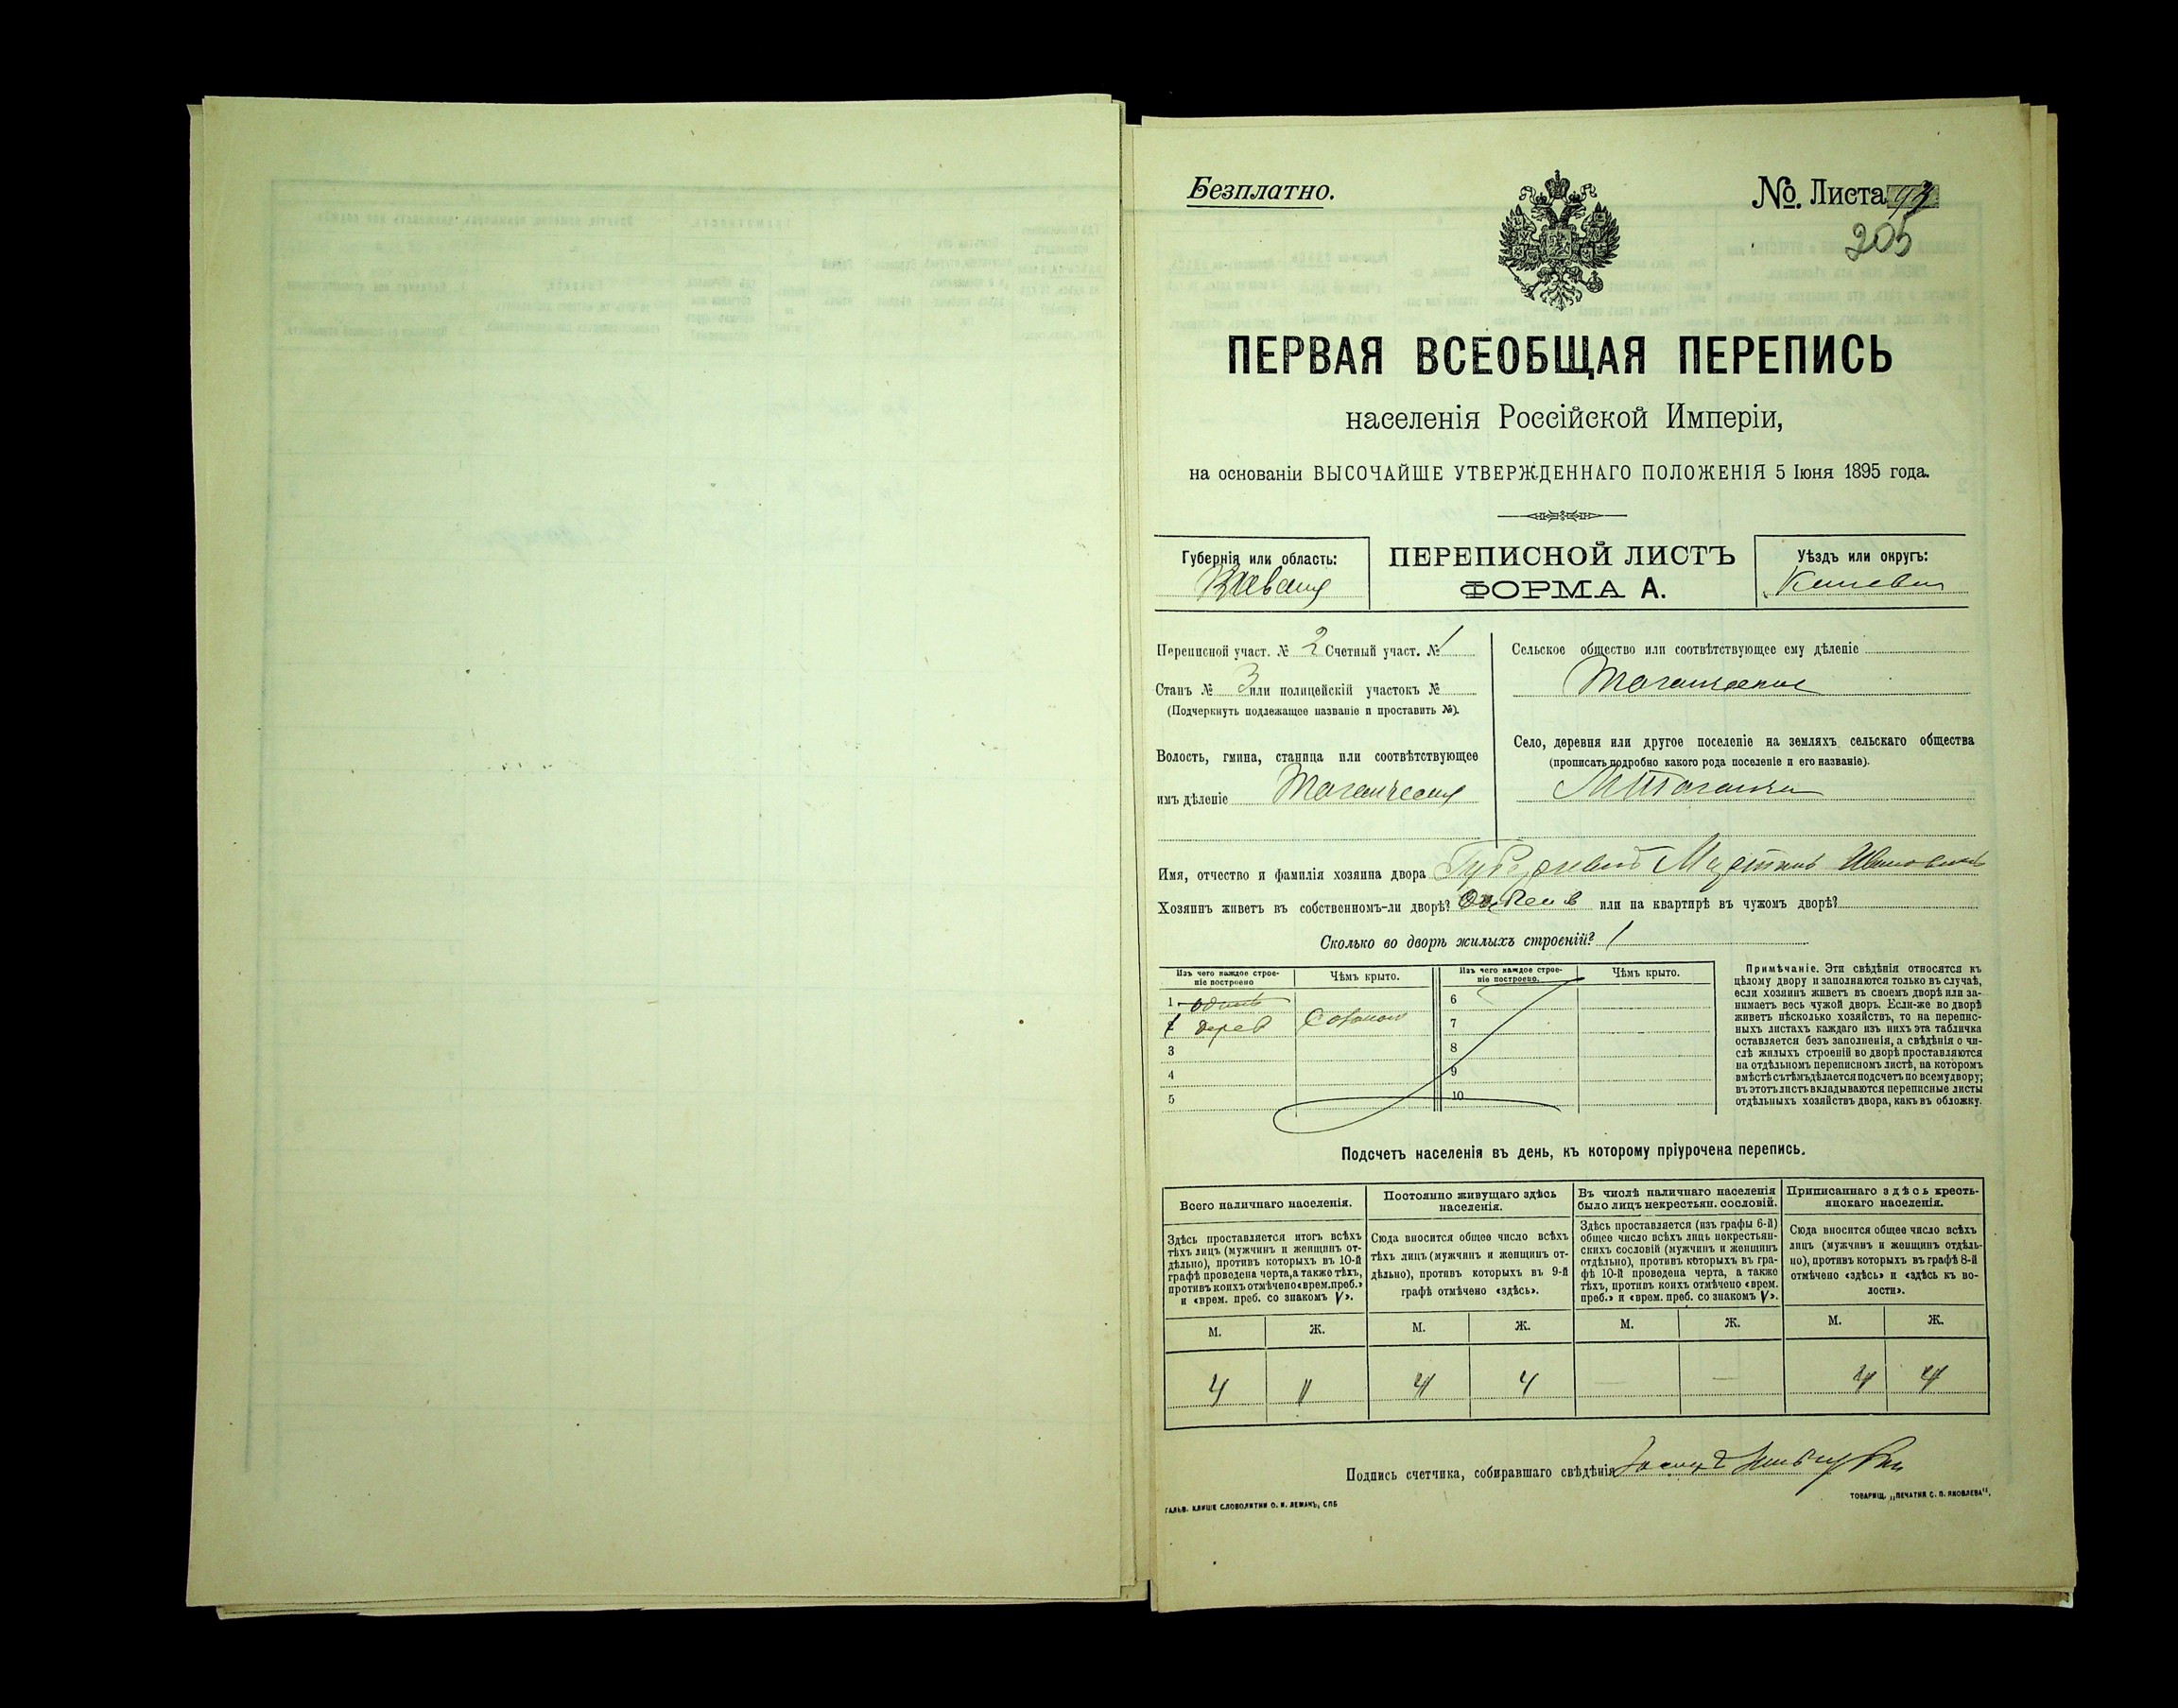 Безплатно.
№ Листа 93
205
ПЕРВАЯ ВСЕОБЩАЯ ПЕРЕПИСЬ
населенія Россійской Имперіи,
на основаніи ВЫСОЧАЙШЕ УТВЕРЖДЕННАГО ПОЛОЖЕНІЯ 5 Іюня 1895 года.
Губернія или область:
ПЕРЕПИСНОЙ ЛИСТЪ
ФОРМА А.
Уѣздъ или округъ:
Переписной участ. № 2 Счетный участ. № 1
Станъ № 3 или полицейскій участокъ №
(Подчеркнуть подлежащее названіе и проставить №).
Волость, гмина, станица или соотвѣтствующее
имъ дѣленіе
Сельское общество или соотвѣтствующее ему дѣленіе
Село, деревня или другое поселеніе на земляхъ сельскаго общества
(прописать подробно какого рода поселеніе и его названіе).
Имя, отчество и фамилія хозяина двора
Хозяинъ живетъ въ собственномъ-ли дворѣ? или на квартирѣ въ чужомъ дворѣ?
Сколько во дворѣ жилыхъ строеній? 1
Изъ чего каждое строе-
ніе построено
Чѣмъ крыто.
Изъ чего каждое строе-
ніе построено.
Чѣмъ крыто.
1 один
дерев Соломою
3
4
5
6
7
8
9
10
Примѣчаніе. Эти свѣдѣнія относятся къ
цѣлому двору и заполняются только въ случаѣ,
если хозяинъ живетъ въ своемъ дворѣ или за-
нимаетъ весь чужой дворъ. Если-же во дворѣ
живетъ нѣсколько хозяйствъ, то на перепис-
ныхъ листахъ каждаго изъ нихъ эта табличка
оставляется безъ заполненія, а свѣдѣнія о чи-
слѣ жилыхъ строеній во дворѣ проставляются
на отдѣльномъ переписномъ листѣ, на которомъ
вмѣстѣ съ тѣмъ дѣлается подсчетъ по всему двору;
въ этотъ листъ вкладываются переписные листы
отдѣльныхъ хозяйствъ двора, какъ въ обложку.
Подсчетъ населенія въ день, къ которому пріурочена перепись.
Всего наличнаго населенія.
Здѣсь проставляется итогъ всѣхъ
тѣхъ лицъ (мужчинъ и женщинъ от-
дѣльно), противъ которыхъ въ 10-й
графѣ проведена черта, а также тѣхъ,
противъ коихъ отмѣчено «врем. преб.»
и «врем. преб. со знакомъ V».
Постоянно живущаго здѣсь
населенія.
Сюда вносится общее число всѣхъ
тѣхъ лицъ (мужчинъ и женщинъ от-
дѣльно), противъ которыхъ въ 9-й
графѣ отмѣчено «здѣсь».
Въ числѣ наличнаго населенія
было лицъ некрестьян. сословій.
Здѣсь проставляется (изъ графы 6-й)
общее число всѣхъ лицъ некрестьян-
скихъ сословій (мужчинъ и женщинъ
отдѣльно), противъ которыхъ въ гра-
фѣ 10-й проведена черта, а также
тѣхъ, противъ коихъ отмѣчено «врем.
преб.» и «врем. преб. со знакомъ V».
Приписаннаго здѣсь кресть-
янскаго населенія.
Сюда вносится общее число всѣхъ
лицъ (мужчинъ и женщинъ отдѣль-
но), противъ которыхъ въ графѣ 8-й
отмѣчено «здѣсь» и «здѣсь къ во-
лости».
М. Ж. М. Ж. М. Ж. М. Ж.
4 4 4 4 — — 4 4
Подпись счетчика, собиравшаго свѣдѣнія
ГАЛЬВ. КЛИШЕ СЛОВОЛИТНИ О. И. ЛЕМАНЪ, СПБ
ТОВАРИЩ. „ПЕЧАТНЯ С. П. ЯКОВЛЕВА“.